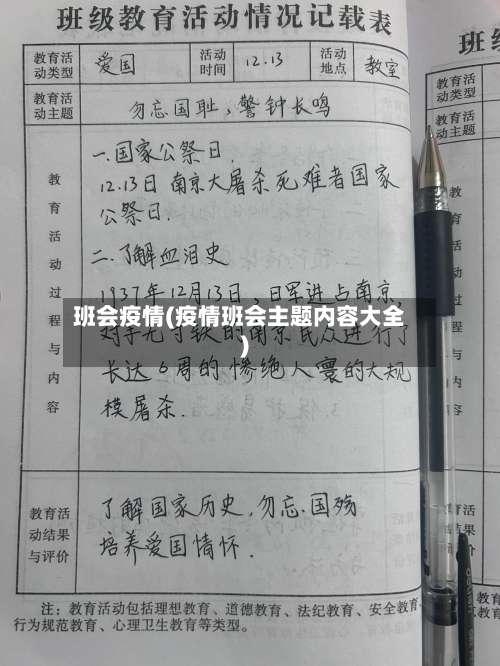 班级教育活动情况记载表
教育活动类型 爱国 活动时间 12.13 活动地点 教室
教育活动主题 勿忘国耻,警钟长鸣
教育活动过程与内容
一.国家公祭日.
12.13日 南京大屠杀死难者国家
公祭日.
二.了解血泪史
1937年12月13日,日军进占南京,
班会疫情(疫情班会主题内容大全
)
对手无寸铁的南京民众进行了
长达6周的惨绝人寰的大规
模屠杀.
教育活动结果与评价
了解国家历史,勿忘国殇
培养爱国情怀.
注:教育活动包括理想教育、道德教育、法纪教育、安全教育
行为规范教育、心理卫生教育等类型。
班
教育活动类型
教育活动主题